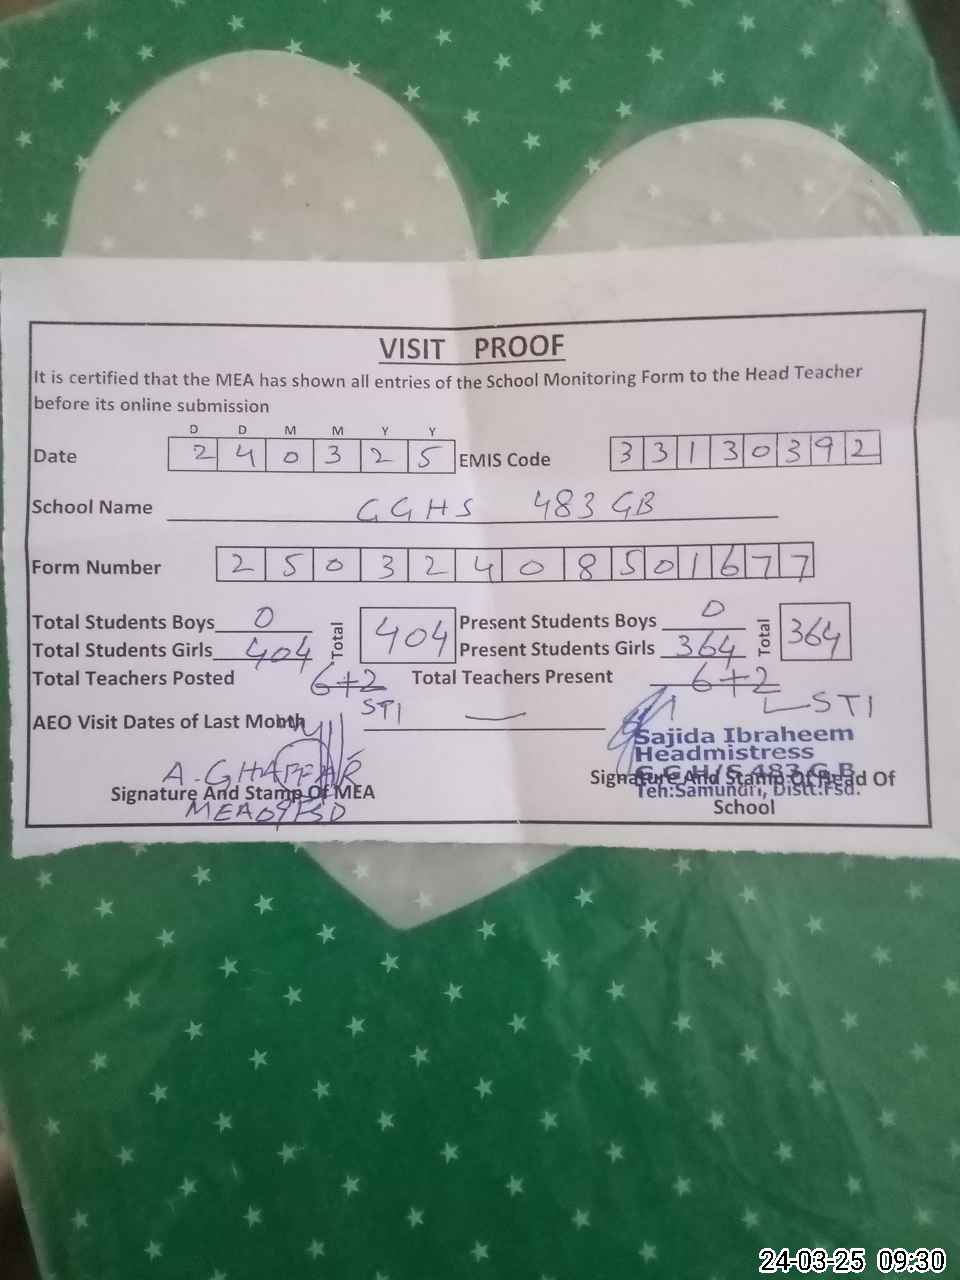 VISIT PROOF
It is certified that the MEA has shown all entries of the School Monitoring Form to the Head Teacher
before its online submission
D D M M Y Y
Date 2 4 0 3 2 5 EMIS Code 3 3 1 3 0 3 9 2
School Name GGHS 483 GB
Form Number 2 5 0 3 2 4 0 8 5 0 1 6 7 7
Total Students Boys 0 Total 404 Present Students Boys 0 Total 364
Total Students Girls 404 Present Students Girls 364
Total Teachers Posted 6+2 Total Teachers Present 6+2
STI STI
AEO Visit Dates of Last Month —
Sajida Ibraheem
Headmistress
G.G.H/S 483 G.B
Teh:Samundri, Distt:Fsd.
A. GHAFFAR
Signature And Stamp Of MEA Signature And Stamp Of Head Of
School
MEA 09 FSD
24-03-25 09:30